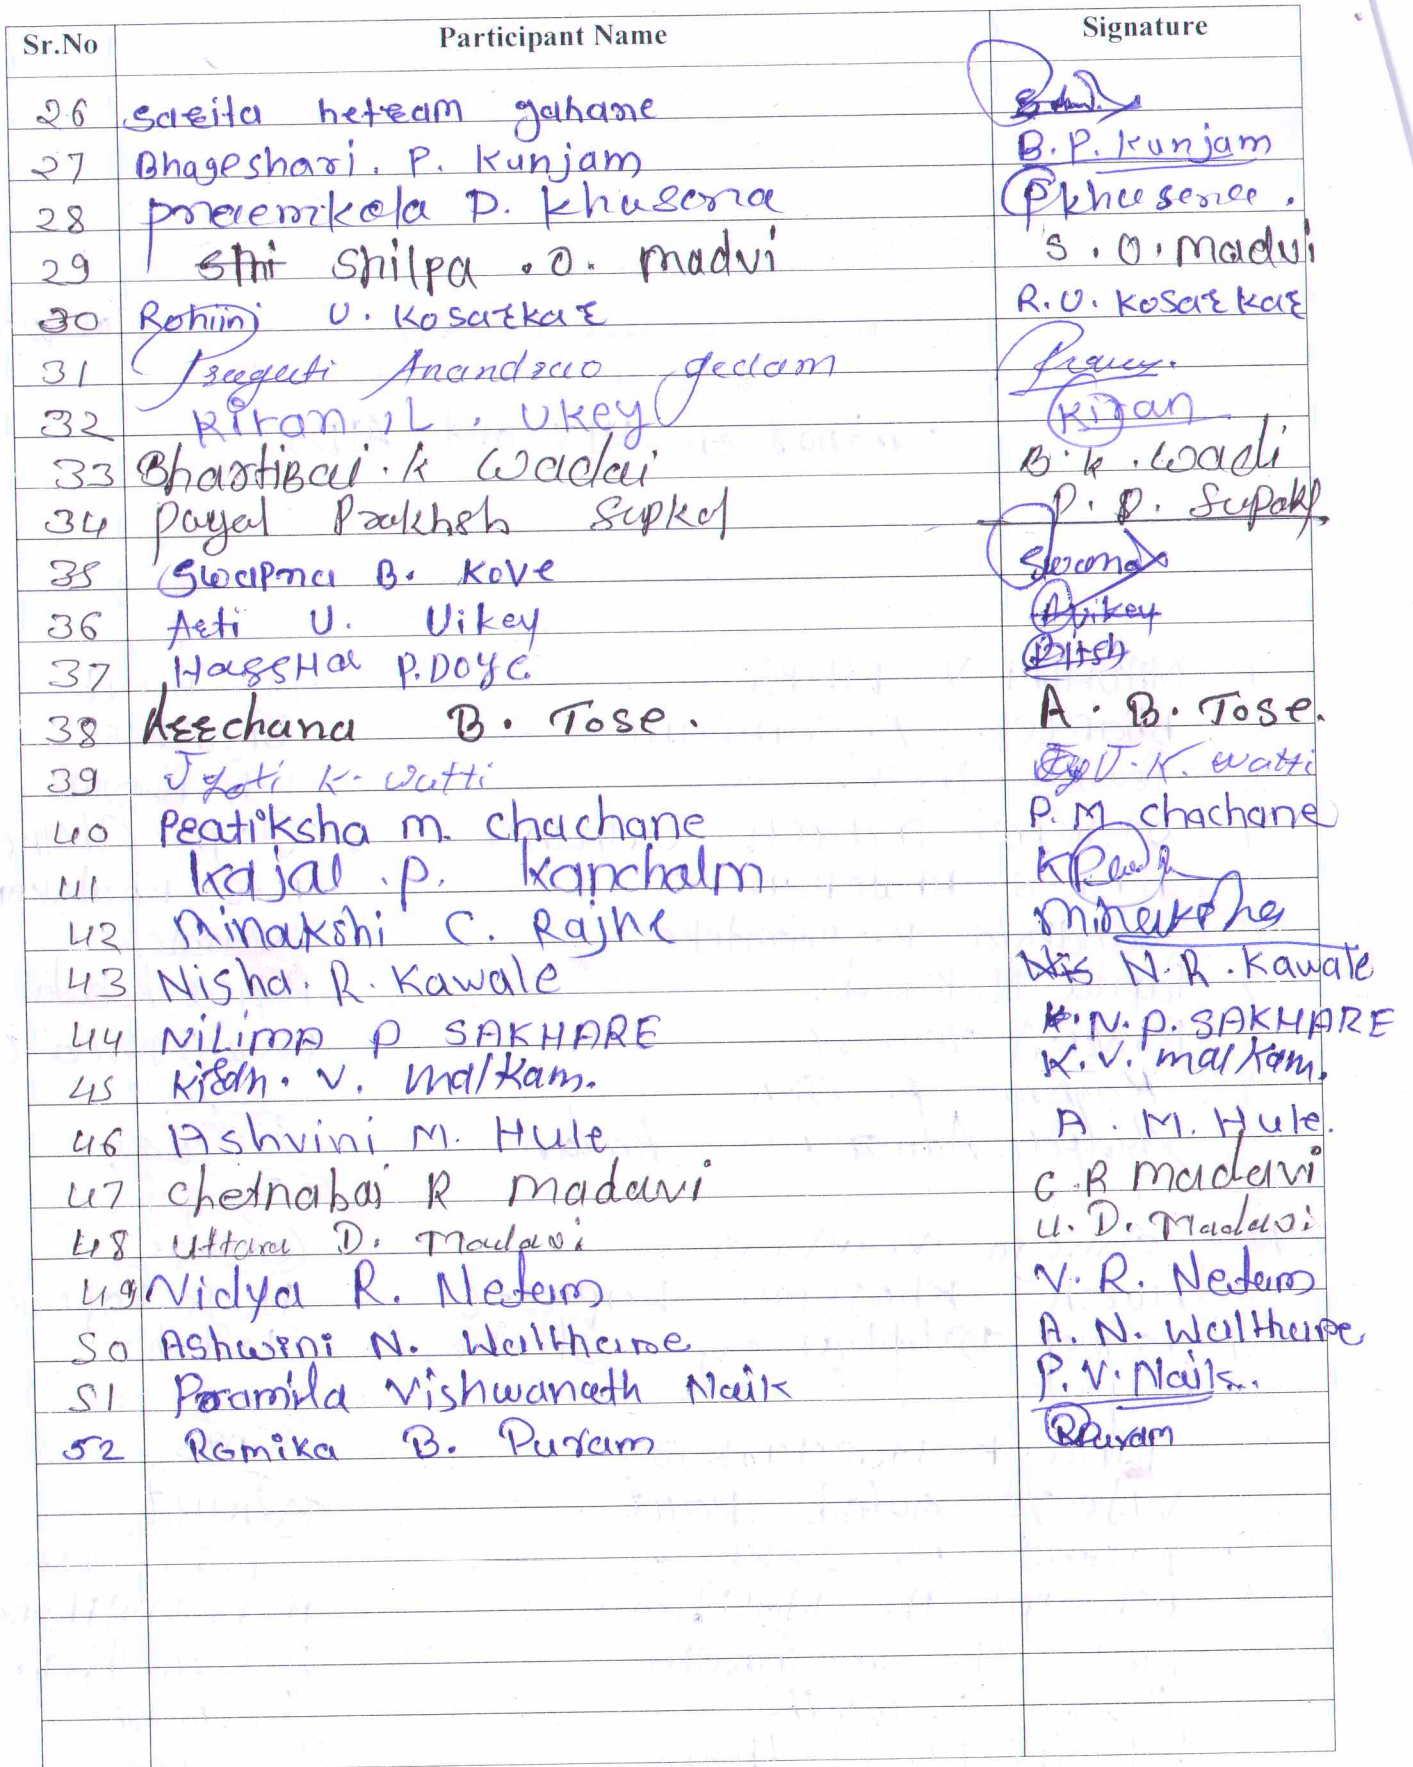 Sr.No Participant Name Signature
26 Sarita hetram gahane
27 Bhageshari. P. Kunjam B.P. Kunjam
28 P. Khusena.
29 Shilpa .O. madvi S.O. madvi
30 Rohini U. Kosarkar R.U. Kosarkar
31 Anandrao gedam
32 Kiran .L. Ukey Kiran
33 BhartiBai.k Wadai B.k.wadi
34 Payal P. D.
35 Swapna B. Kove
36 Arti U. Uikey Auikey
37 HarsHa P.Doye
38 Archana B. Tose. A. B. Tose.
39 Jyoti K. Watti J.K. watti
40 Pratiksha m. chachane P.M chachane
41 Kajal .p. Kanchalm
42 Minakshi C. Rajne Minakshi
43 Nisha. R. Kawale N.R. Kawale
44 NiLimA P SAKHARE N.P. SAKHARE
45 V. malkam. K.V. malkam.
46 Ashvini M. Hule A. M. Hule.
47 Chetnabai R madavi C.R madavi
48 Uttara D. Madavi U. D. Madavi
49 Vidya R. Netam V. R. Netam
50 Ashwini N. Walthare A. N. Walthare
51 Pramila Vishwanath Naik P.V. Naik.
52 Romika B. Puram RPuram